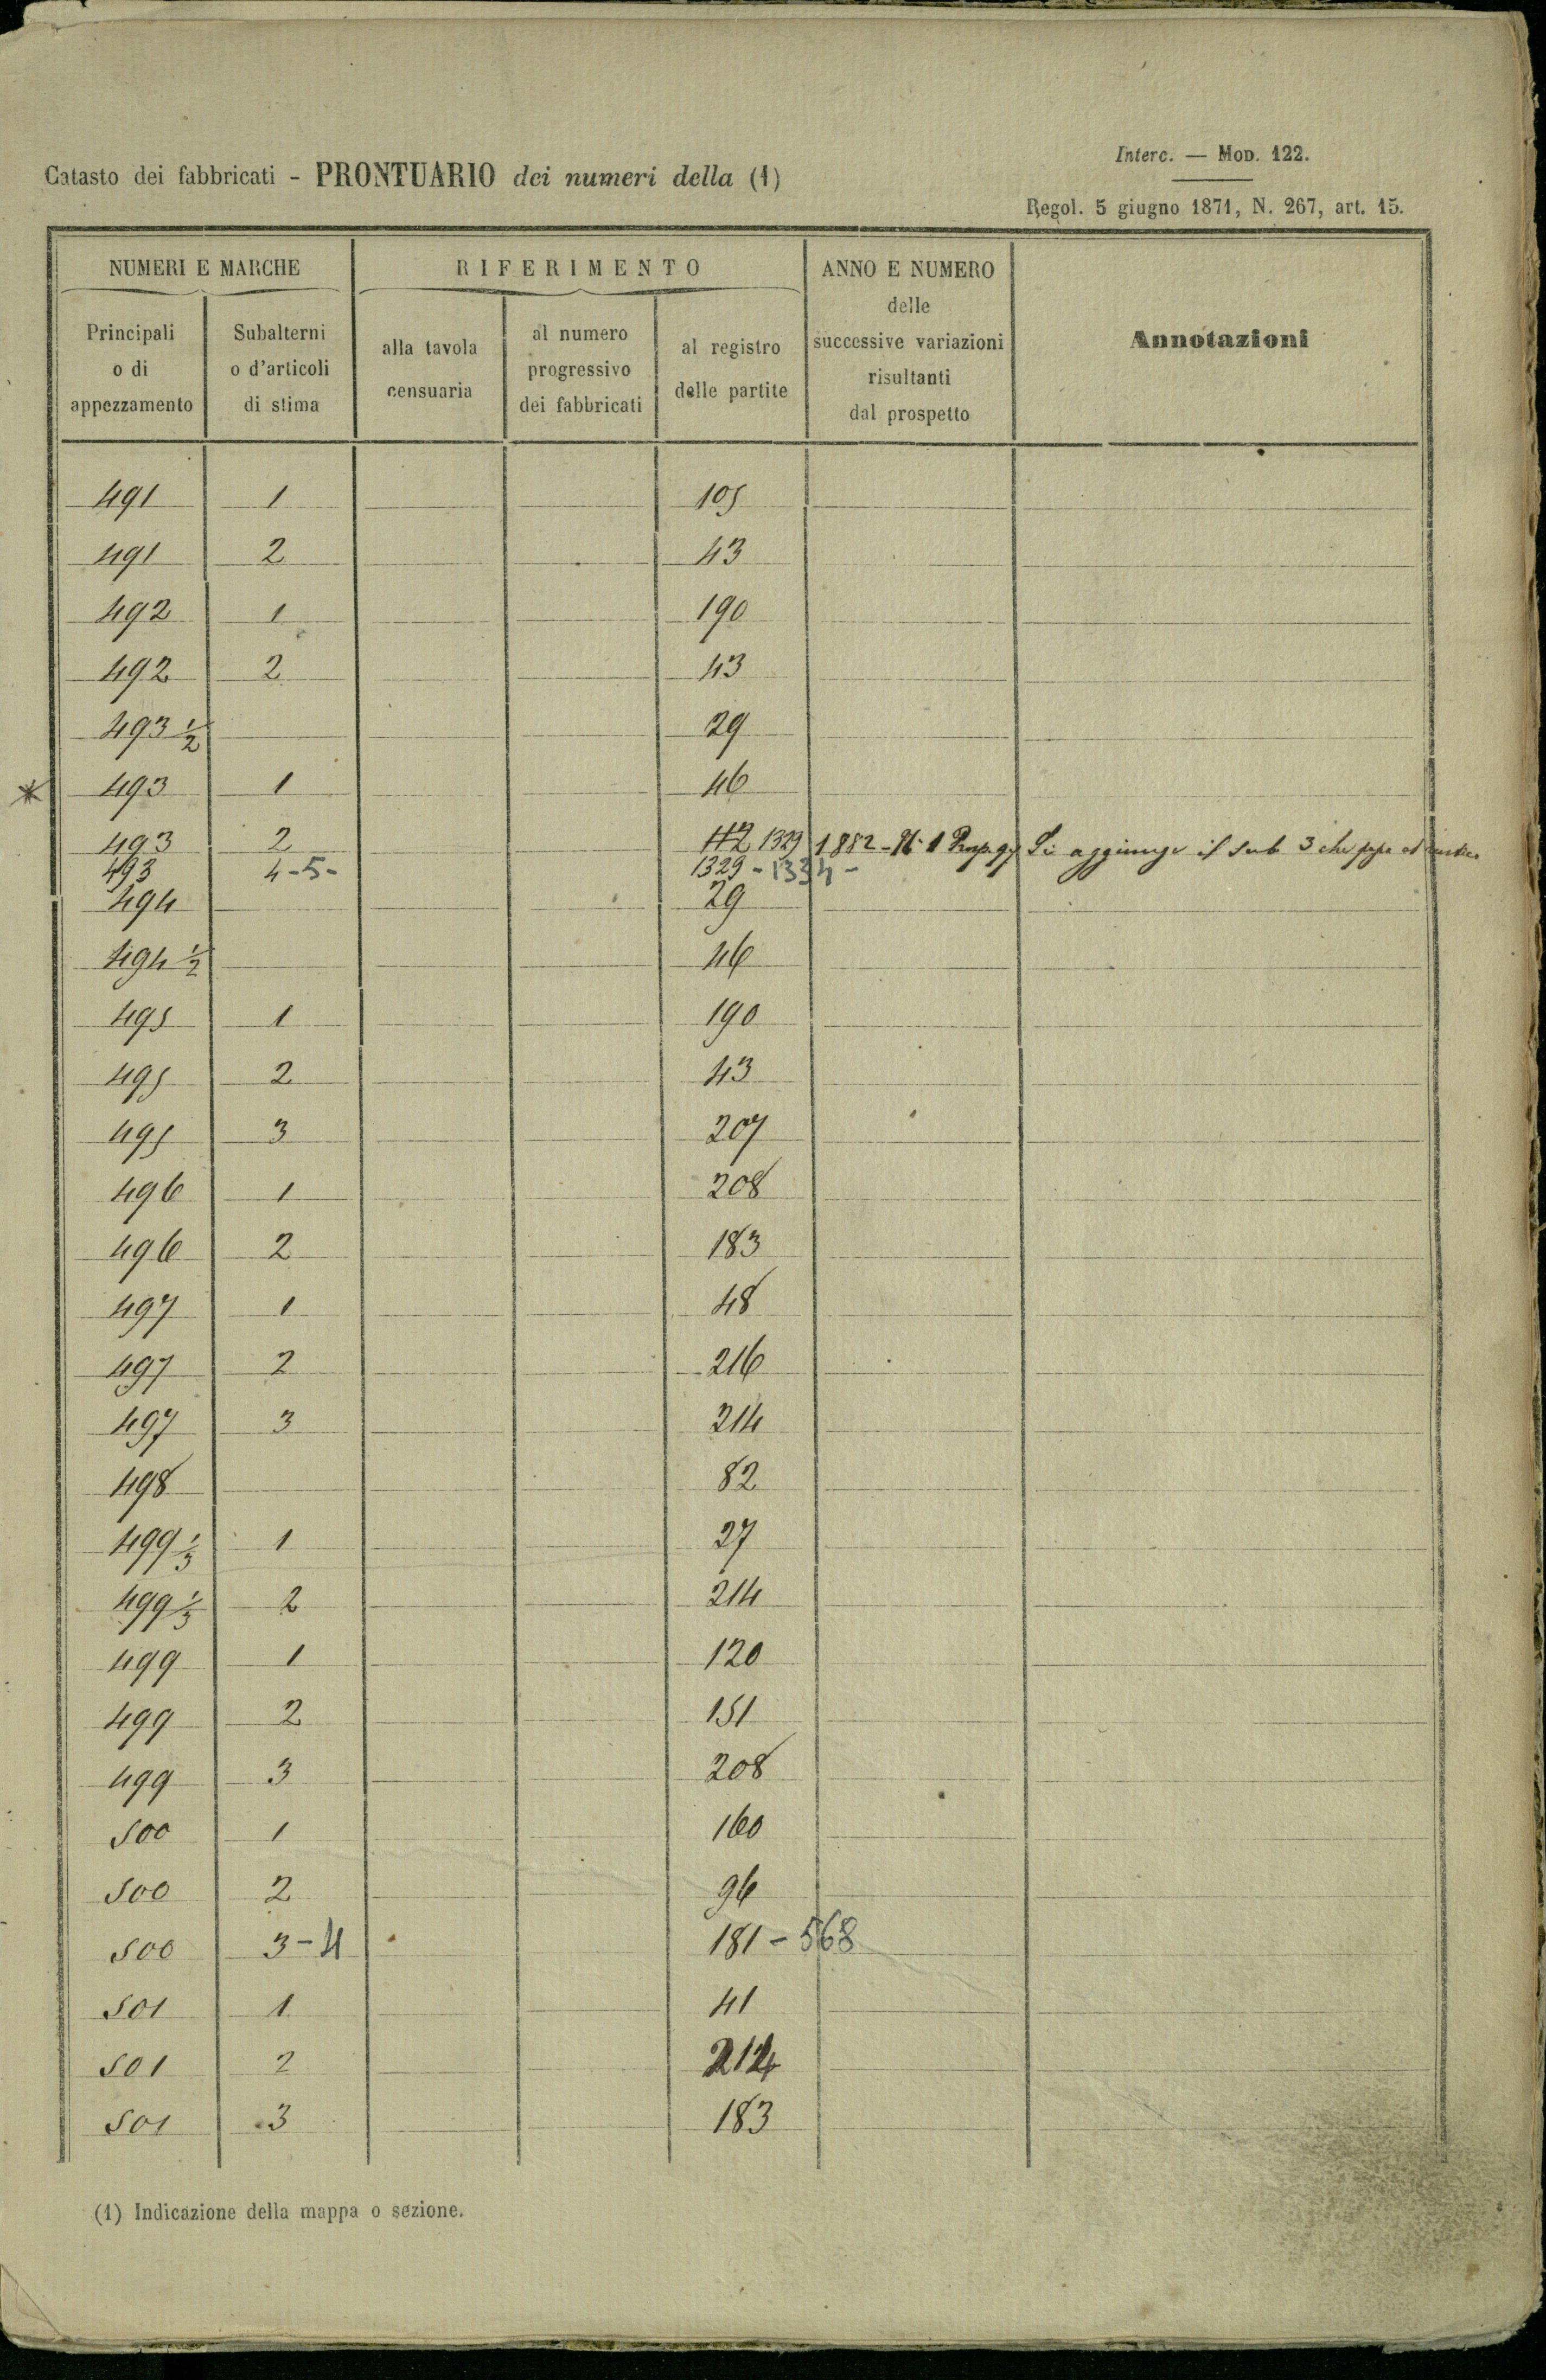 Interc. — Mod. 122.
Catasto dei fabbricati - PRONTUARIO dei numeri della (1)
Regol. 5 giugno 1871, N. 267, art. 15.
NUMERI E MARCHE
RIFERIMENTO
ANNO E NUMERO
delle
successive variazioni
risultanti
dal prospetto
Annotazioni
Principali
o di
appezzamento
Subalterni
o d'articoli
di stima
alla tavola
censuaria
al numero
progressivo
dei fabbricati
al registro
delle partite
491 1 105
491 2 43
492 1 190
492 2 43
493 1/2 29
* 493 1 46
493 2 112 1329 1882 - 1 Si aggiunge il sub 3 che
493 4-5- 1329-1334-
494 29
494 1/2 46
495 1 190
495 2 43
495 3 207
496 1 208
496 2 183
497 1 48
497 2 216
497 3 214
498 82
499 1/3 1 27
499 1/3 2 214
499 1 120
499 2 151
499 3 208
500 1 160
500 2 96
500 3-4 181-568
501 1 41
501 2 214
501 3 183
(1) Indicazione della mappa o sezione.